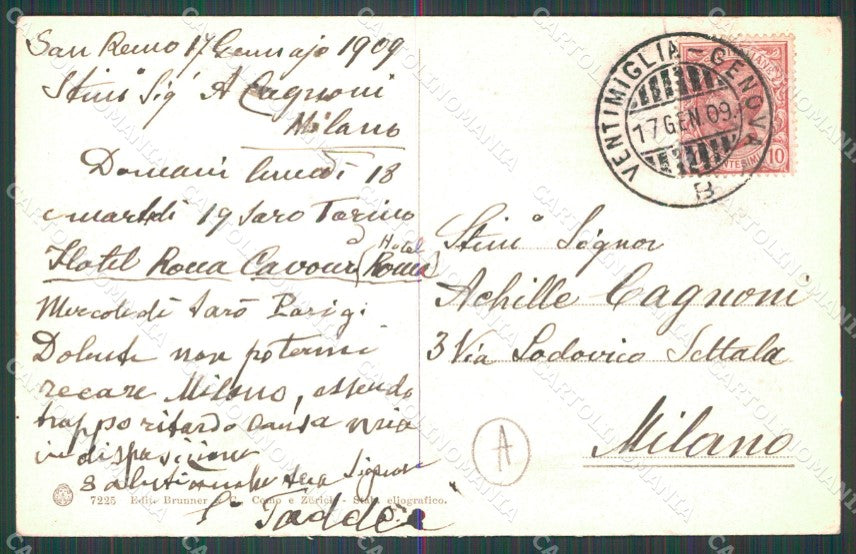 San Remo 17 Gennajo 1909
Stim° Sig' A Cagnoni
Milano
Domani lunedì 18
e martedì 19 saro Torino
Hotel Roma Cavour (Hotel Roma)
Mercoledì sarò Parigi
Dolente non potermi
recare Milano, essendo
troppo ritardo causa mia
indisposizione
Saluti anche sua Signora
Taddei
7225 Edit. Brunner & C., Como e Zürich - Stab. eliografico.
VENTIMIGLIA - GENOVA
17 GEN. 09.
B
10
Stim° Signor
Achille Cagnoni
3 Via Lodovico Settala
Milano
A
CARTOLINOMANIA